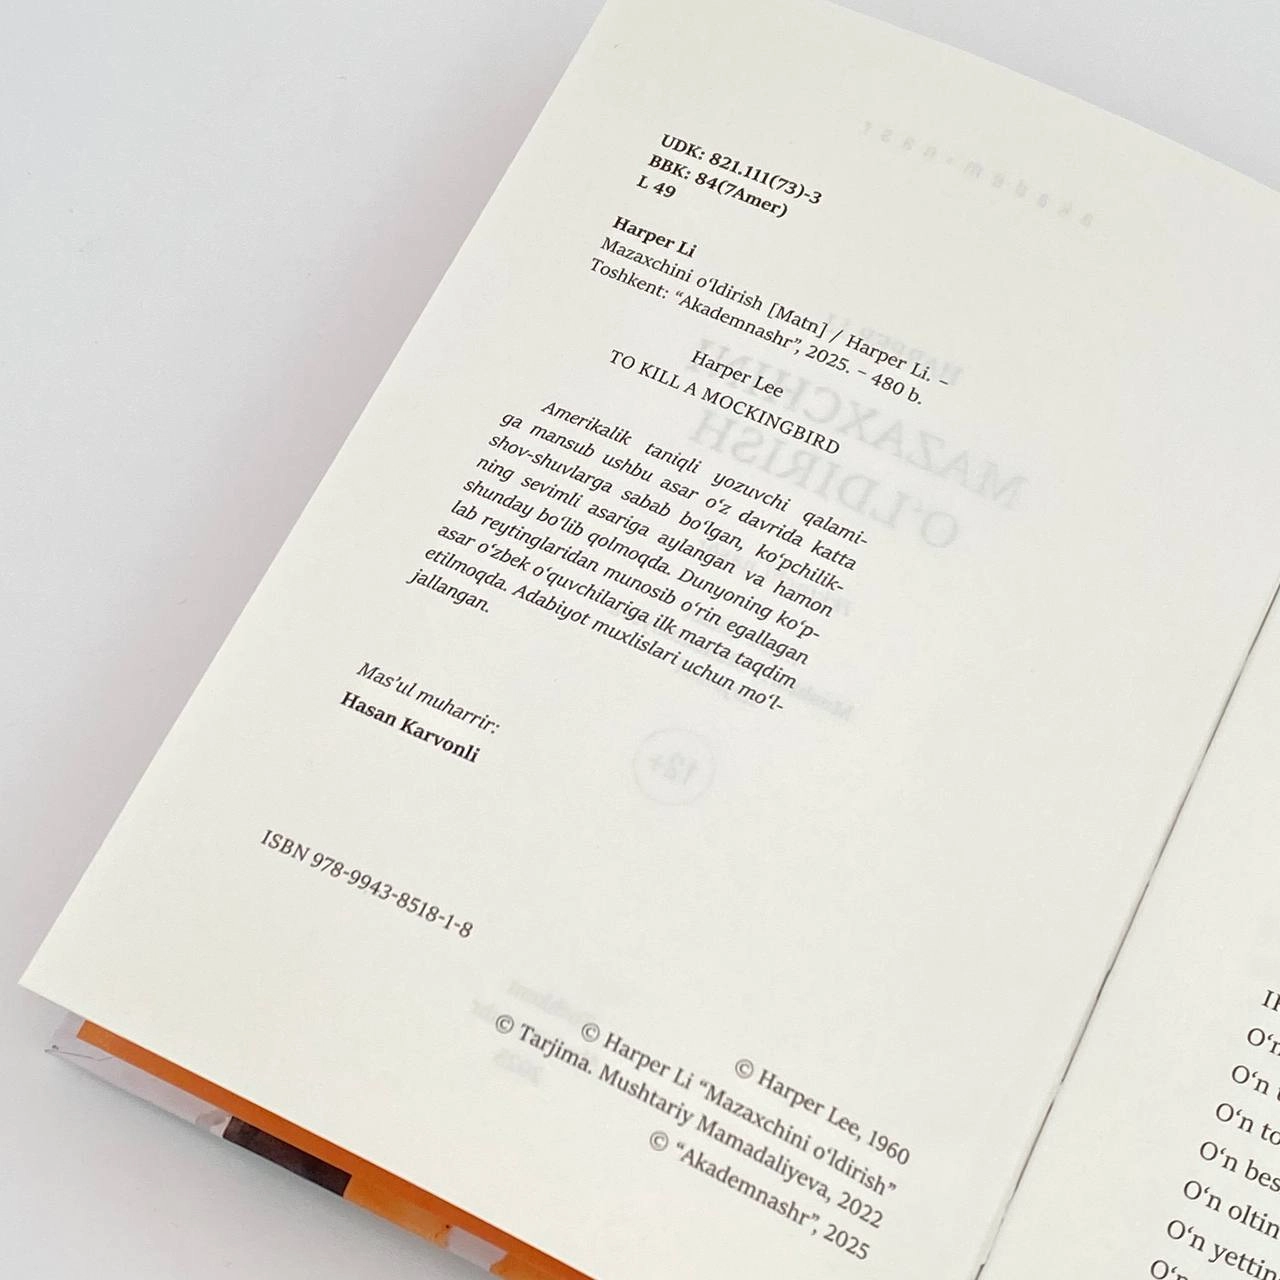 UDK: 821.111(73)-3
BBK: 84(7Amer)
L 49
Harper Li
Mazaxchini o‘ldirish [Matn] / Harper Li. –
Toshkent: “Akademnashr”, 2025. – 480 b.
Harper Lee
TO KILL A MOCKINGBIRD
Amerikalik taniqli yozuvchi qalami-
ga mansub ushbu asar o‘z davrida katta
shov-shuvlarga sabab bo‘lgan, ko‘pchilik-
ning sevimli asariga aylangan va hamon
shunday bo‘lib qolmoqda. Dunyoning ko‘p-
lab reytinglaridan munosib o‘rin egallagan
asar o‘zbek o‘quvchilariga ilk marta taqdim
etilmoqda. Adabiyot muxlislari uchun mo‘l-
jallangan.
Mas’ul muharrir:
Hasan Karvonli
ISBN 978-9943-8518-1-8
© Harper Lee, 1960
© Harper Li “Mazaxchini o‘ldirish”
© Tarjima. Mushtariy Mamadaliyeva, 2022
© “Akademnashr”, 2025
O‘n
O‘n to
O‘n bes
O‘n oltin
O‘n yettin